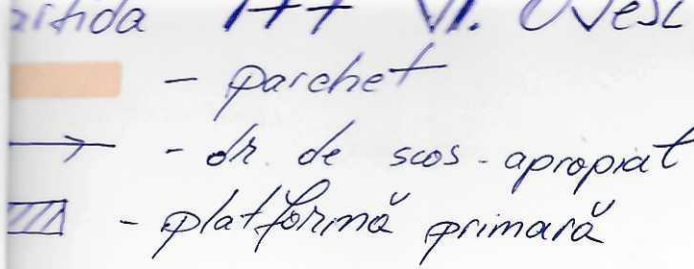 - parchet
- dr. de scos-apropiat
- platformă primară